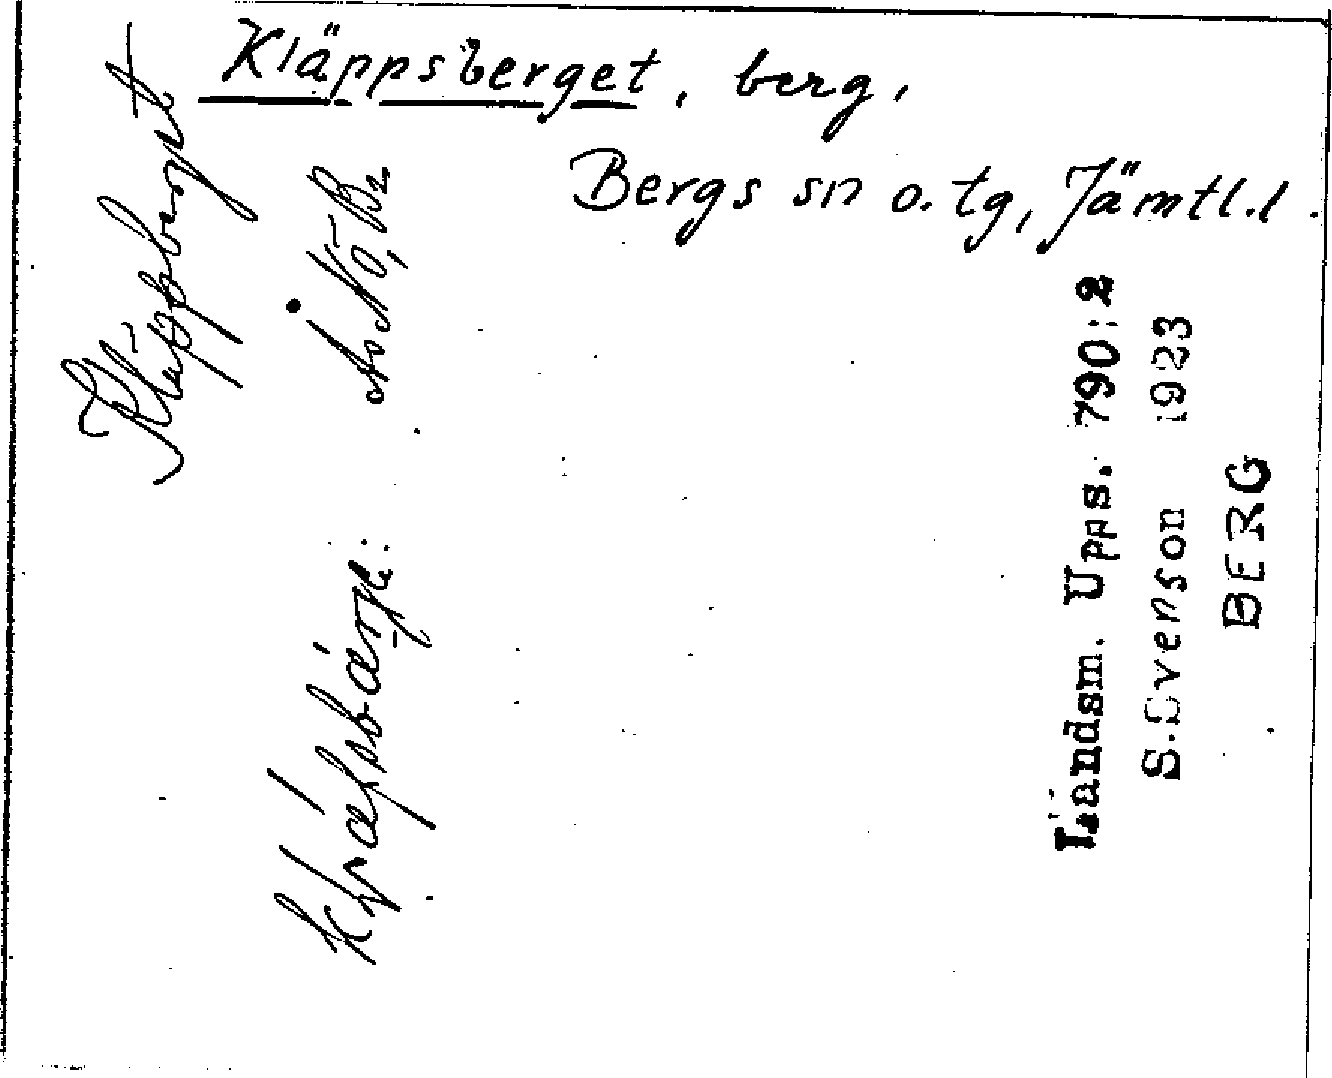 Kläppsberget, berg,
Bergs sn o. tg, Jämtl.l.
Kläppsberget
Å. Nö, B2
Landsm. Upps. 790:2
S. Svenson 1923
BERG